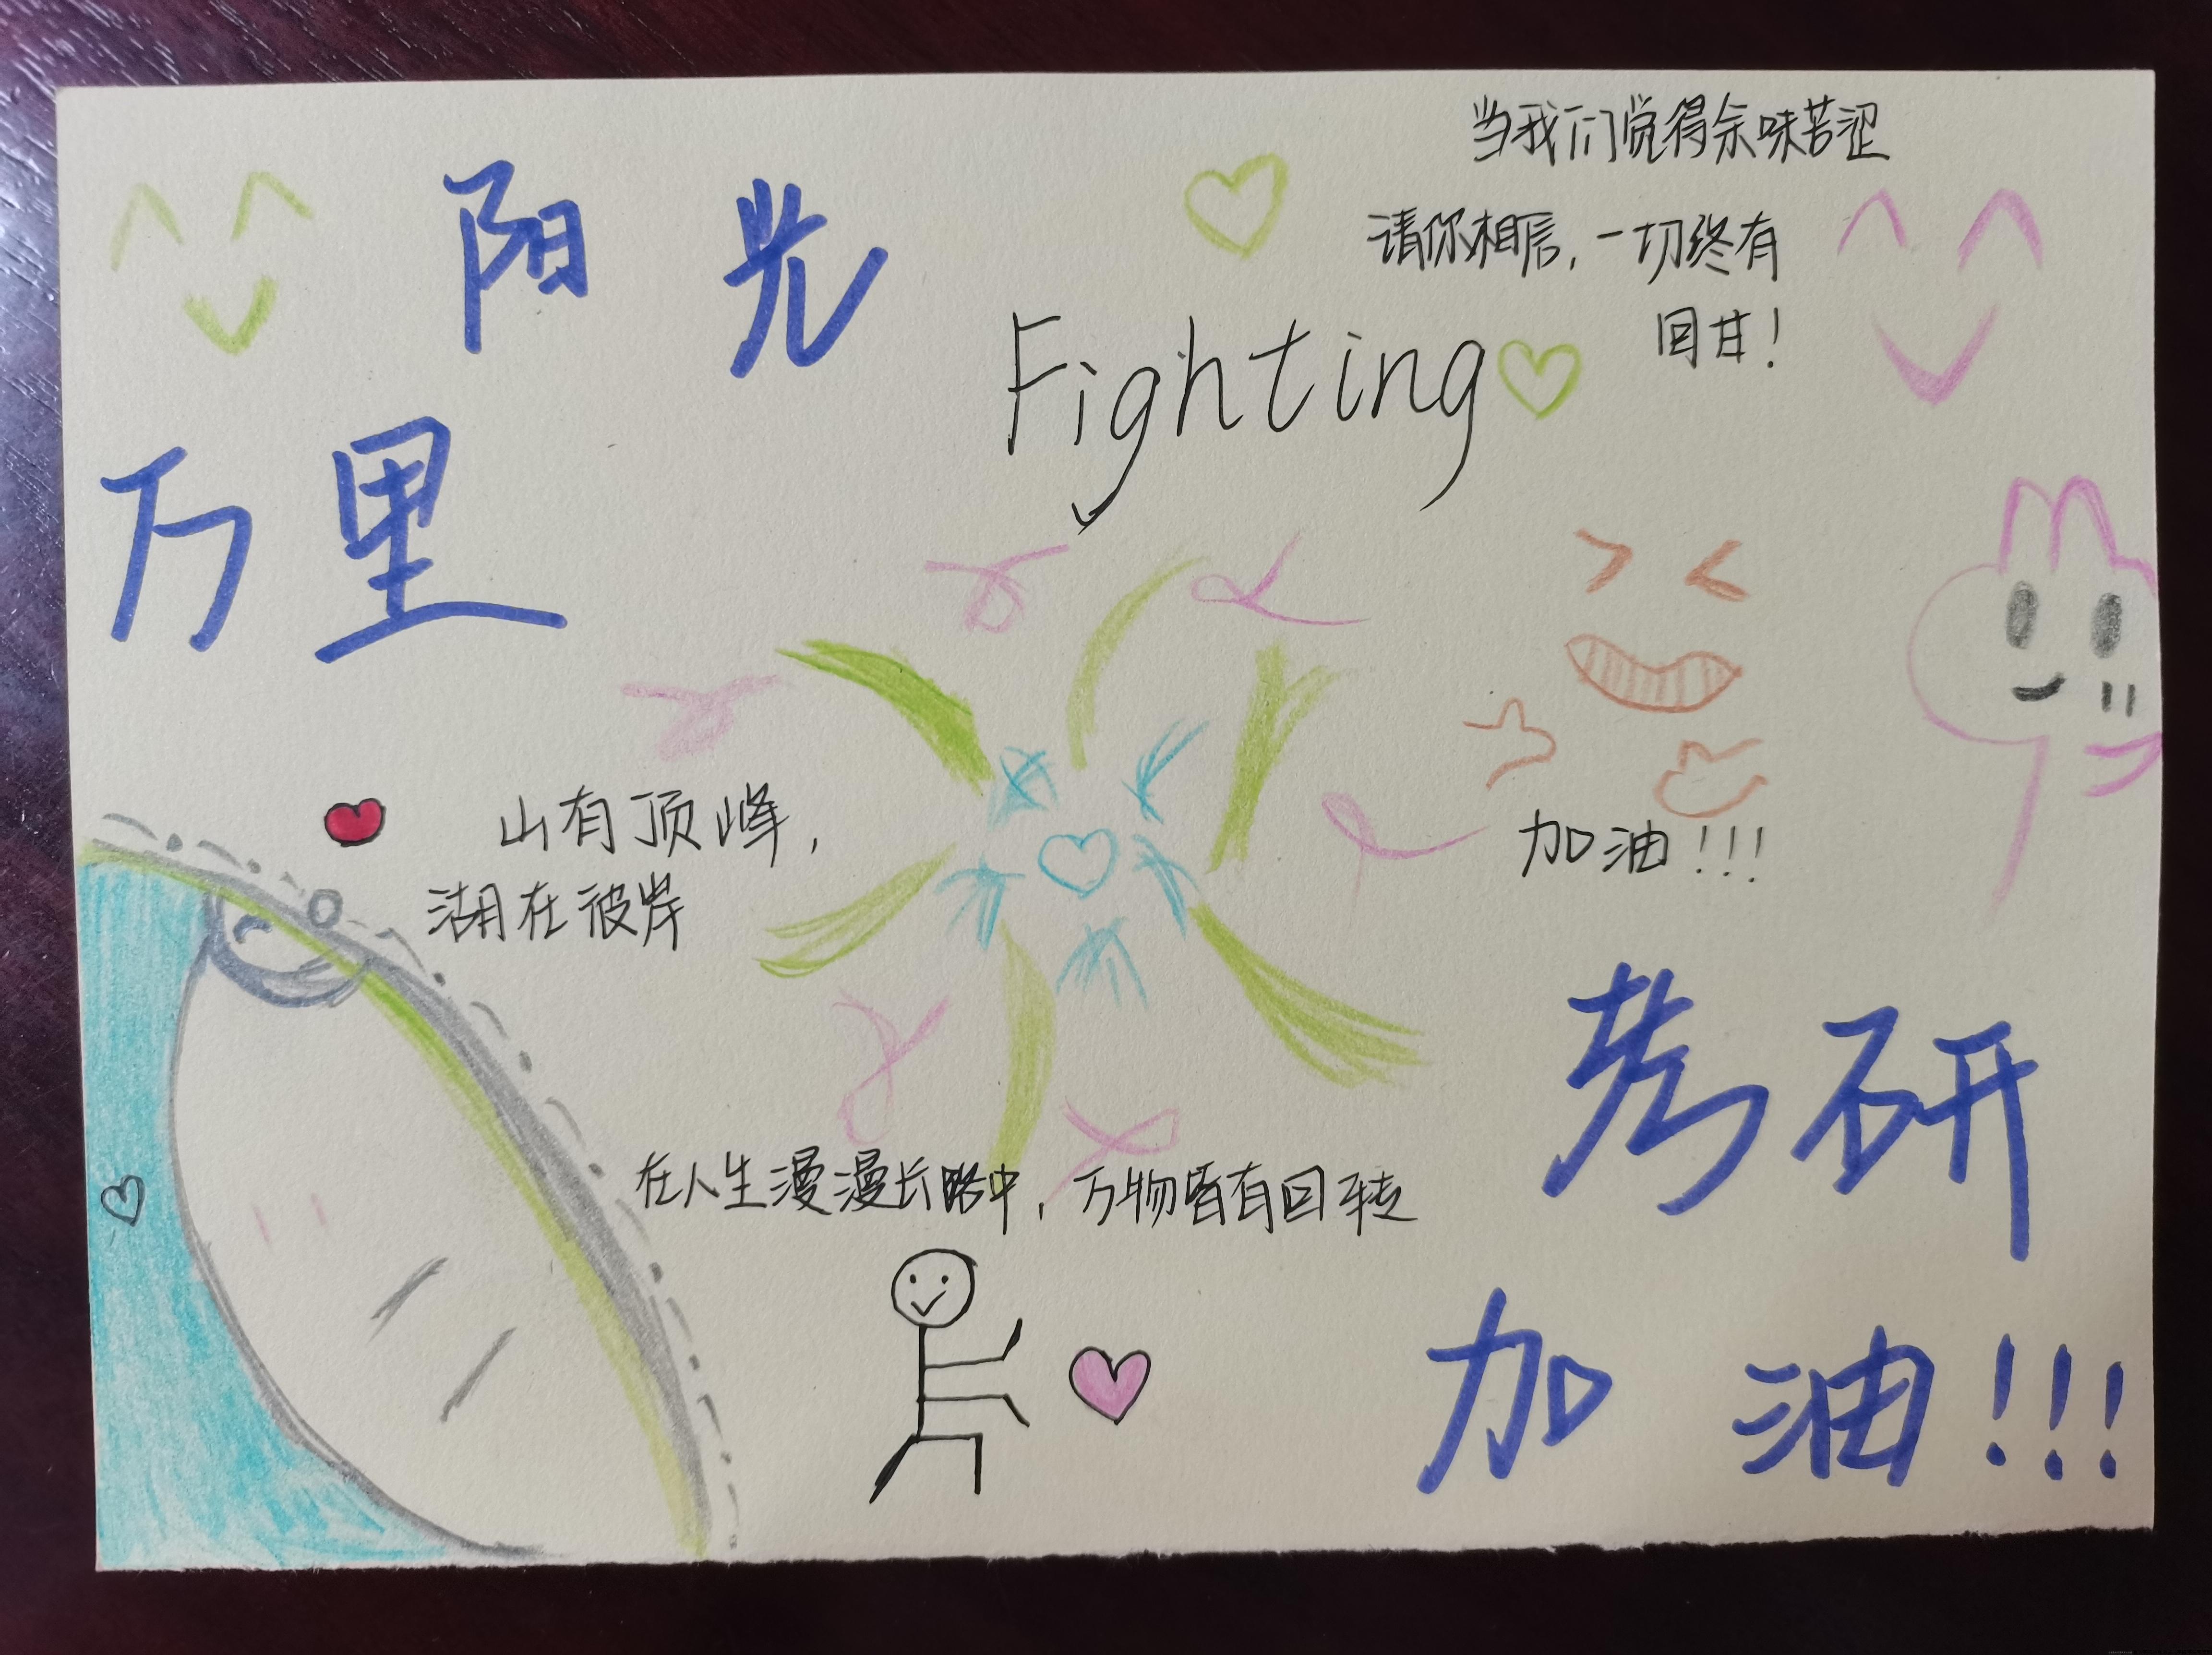 阳光
万里
当我们觉得余味苦涩
请你相信，一切终有
回甘！
Fighting
山有顶峰，
湖在彼岸
加油！！！
在人生漫漫长路中，万物皆有回转
考研
加油！！！